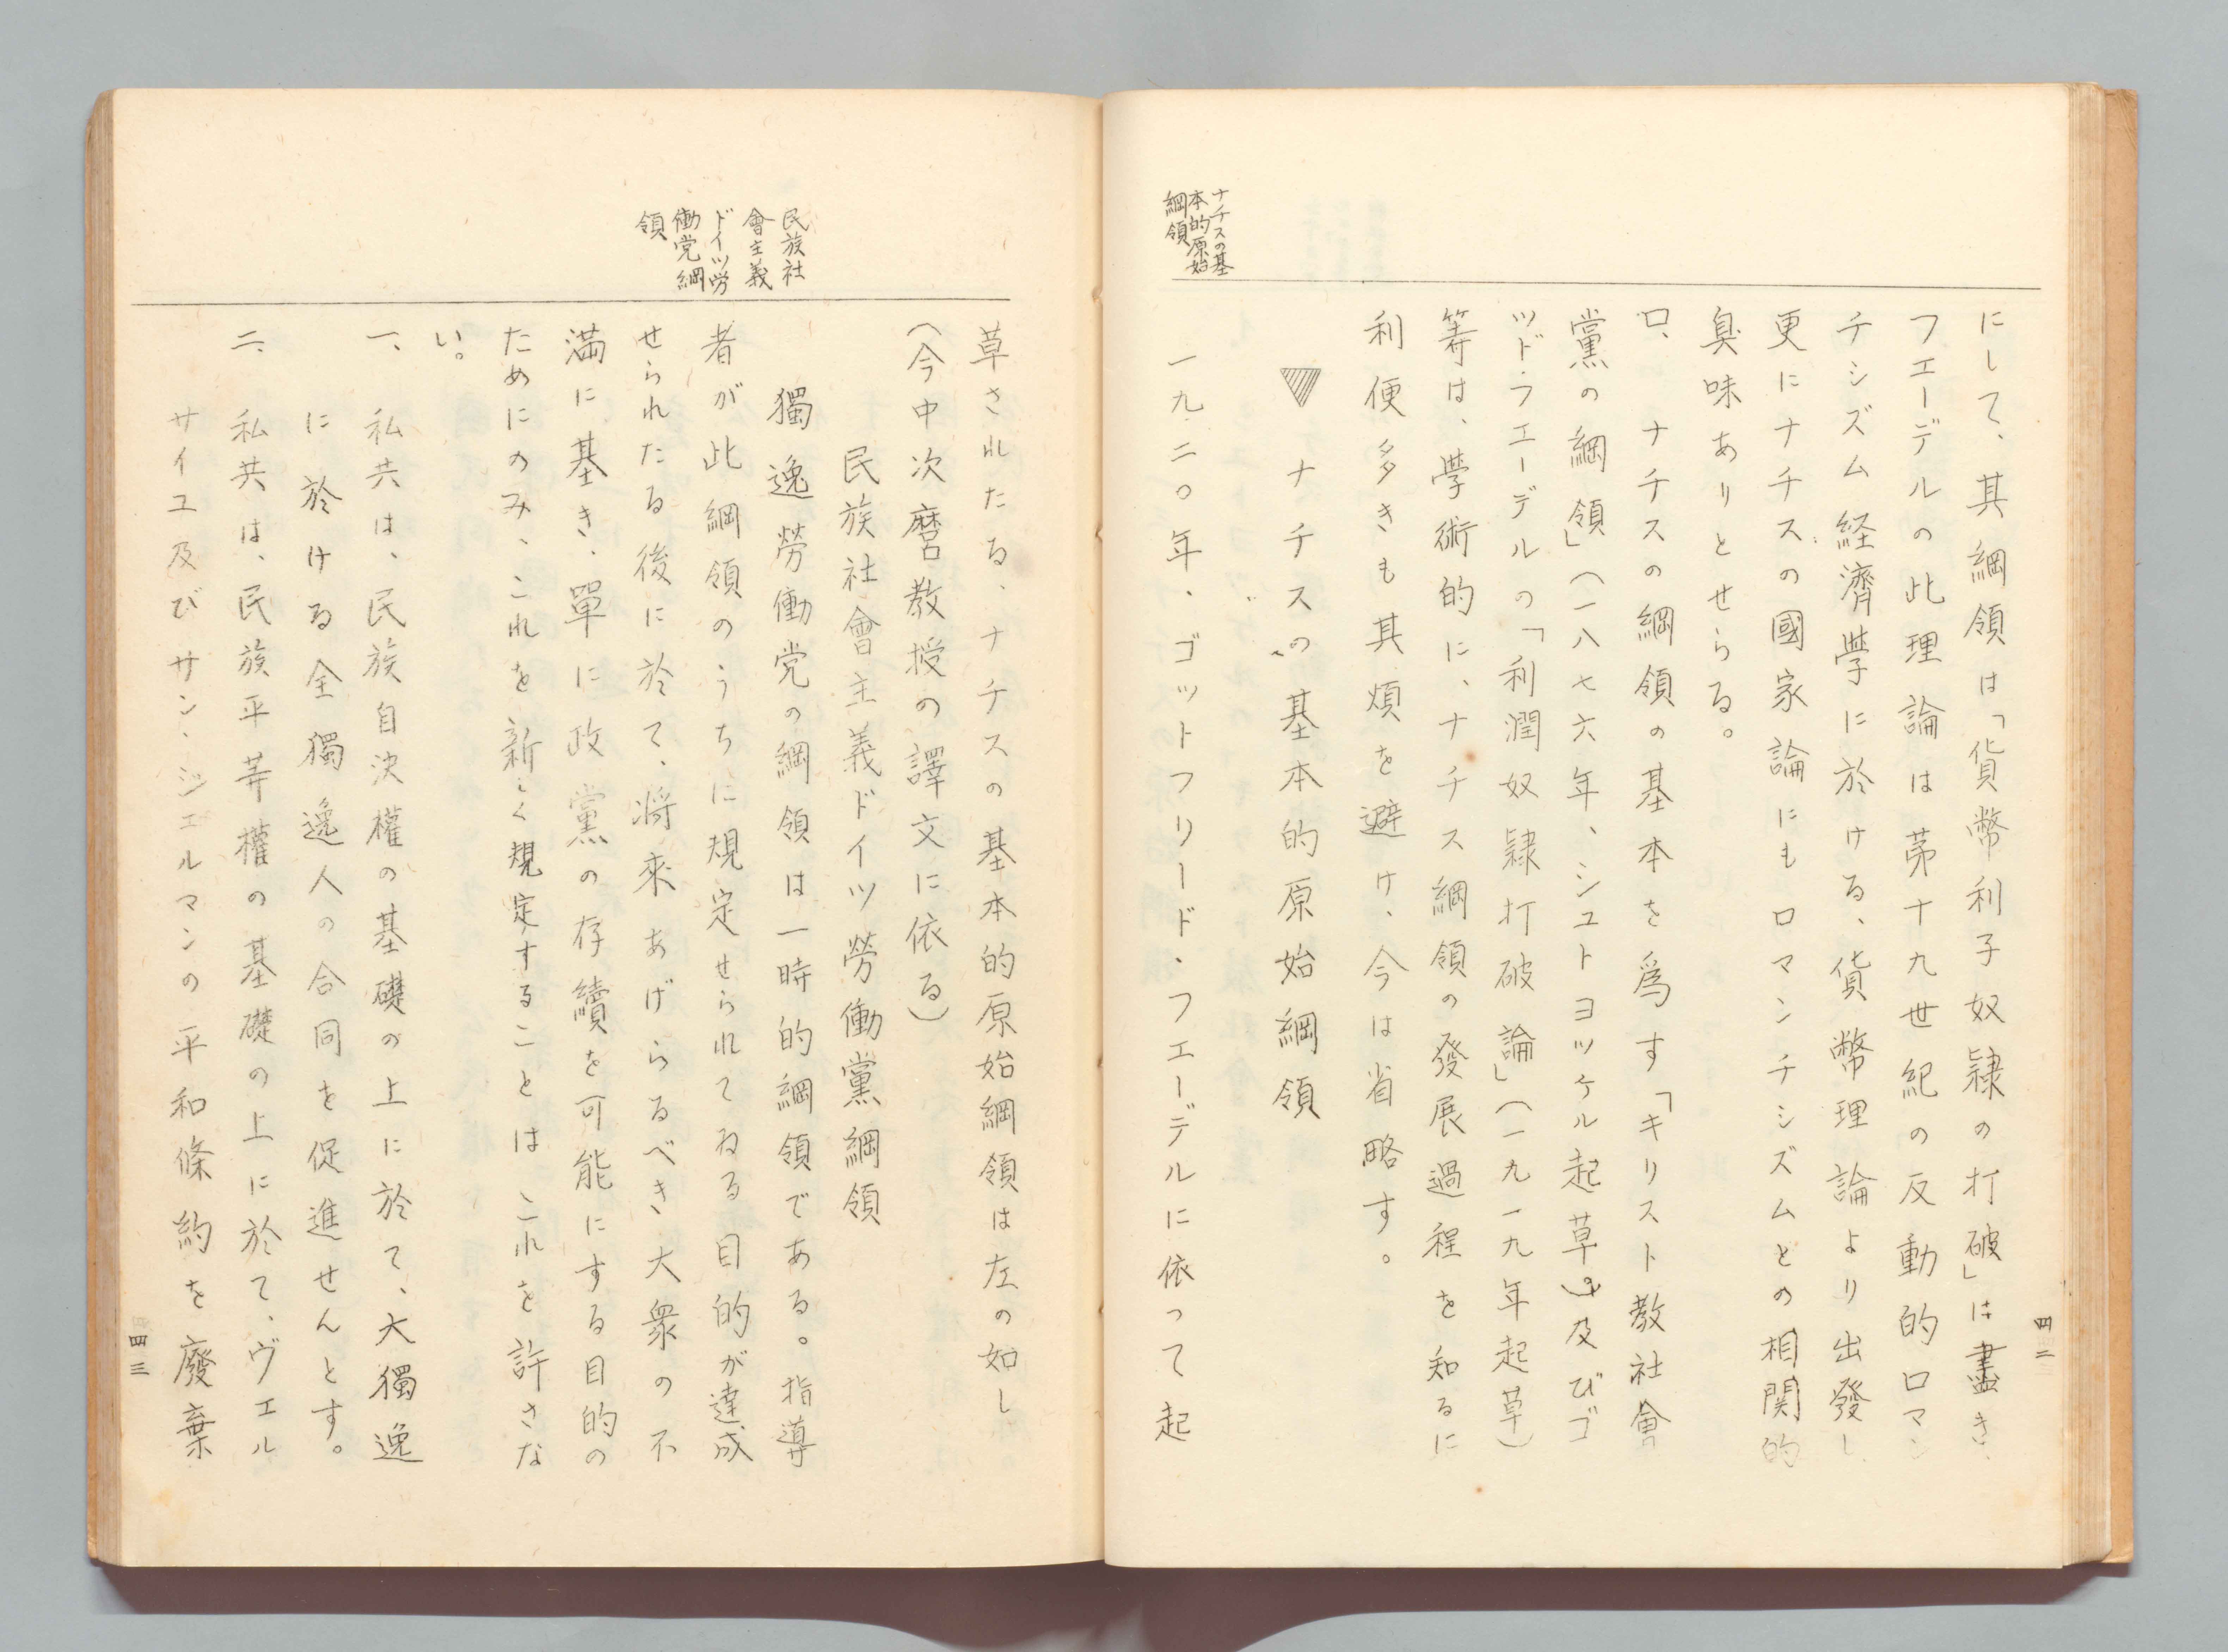 四二
ナチスの基
本的原始
綱領
にして、其綱領は「貨幣利子奴隷の打破」は書き、
フエーデルの此理論は第十九世紀の反動的ロマン
チシズム経濟學に於ける、貨幣理論より出發し
更にナチスの國家論にもロマンチシズムとの相関的
臭味ありとせらる。
ロ、ナチスの綱領の基本を爲す「キリスト教社會
黨の綱領」(一八七六年、シュトヨッケル起草)及びゴ
ツド・フエーデルの「利潤奴隷打破論」(一九一九年起草)
等は、學術的に、ナチス綱領の發展過程を知るに
利便多きも其煩を避け、今は省略す。
▼ナチスの基本的原始綱領
一九二〇年、ゴットフリード・フエーデルに依って起
民族社
會主義
ドイツ労
働党綱
領
草されたる、ナチスの基本的原始綱領は左の如し
(今中次麿教授の譯文に依る)
民族社會主義ドイツ勞働黨綱領
獨逸勞働党の綱領は一時的綱領である。指導
者が此綱領のうちに規定せられてゐる目的が達成
せられたる後に於て、将來あげらるべき大衆の不
満に基き、單に政黨の存續を可能にする目的の
ためにのみ、これを新しく規定することはこれを許さな
い。
一、私共は、民族自決權の基礎の上に於て、大獨逸
に於ける全獨逸人の合同を促進せんとす。
二、私共は、民族平等權の基礎の上に於て、ヴエル
サイユ及びサン・ジエルマンの平和條約を廢棄
四三